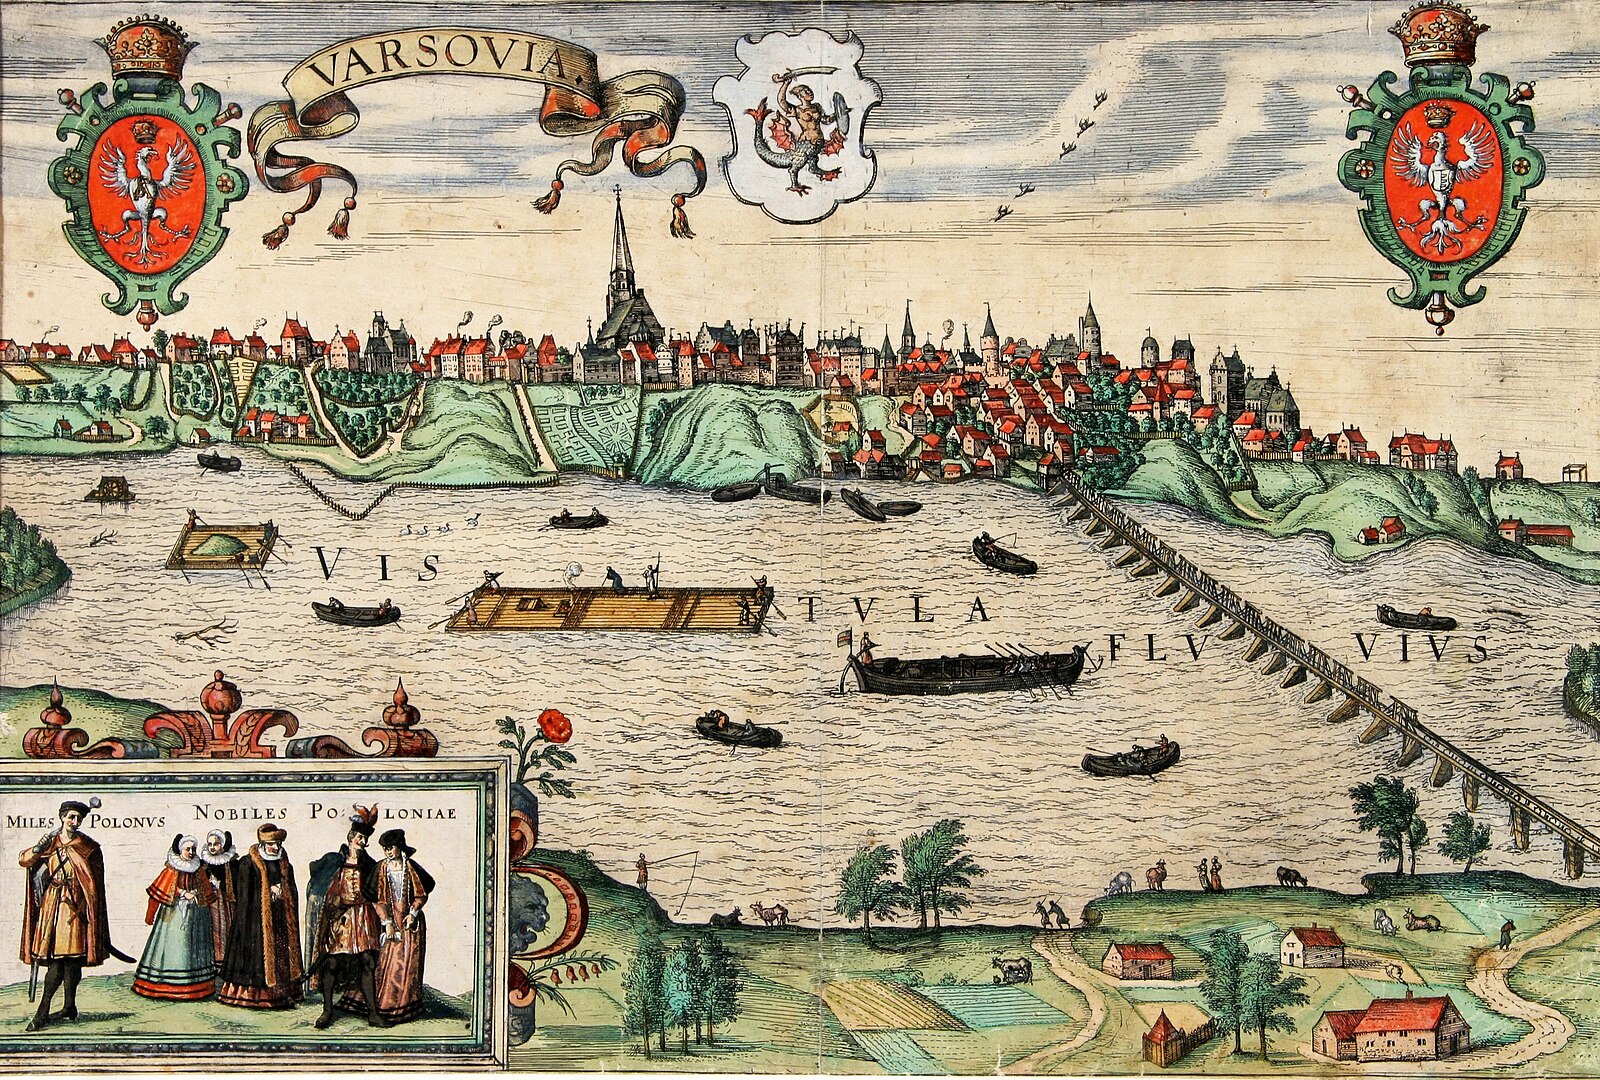 VARSOVIA.
VISTVLA FLVVIVS
MILES POLONVS
NOBILES POLONIAE